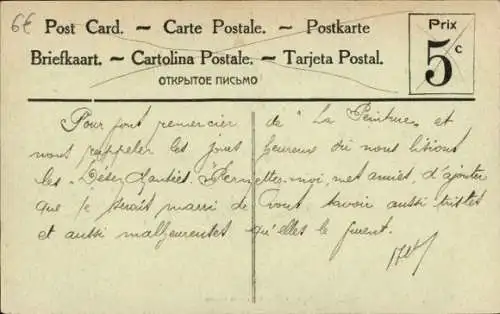 6€
Post Card. — Carte Postale. — Postkarte
Briefkaart. — Cartolina Postale. — Tarjeta Postal.
ОТКРЫТОЕ ПИСЬМО
Prix
5c
Pour remercier de "La Peinture" et
nous rappeler les jours heureux où nous lisions
les Permettez-moi, mes amies, d'ajouter
que je serais marri de vous savoir aussi tristes
et aussi malheureuses qu'elles le furent.